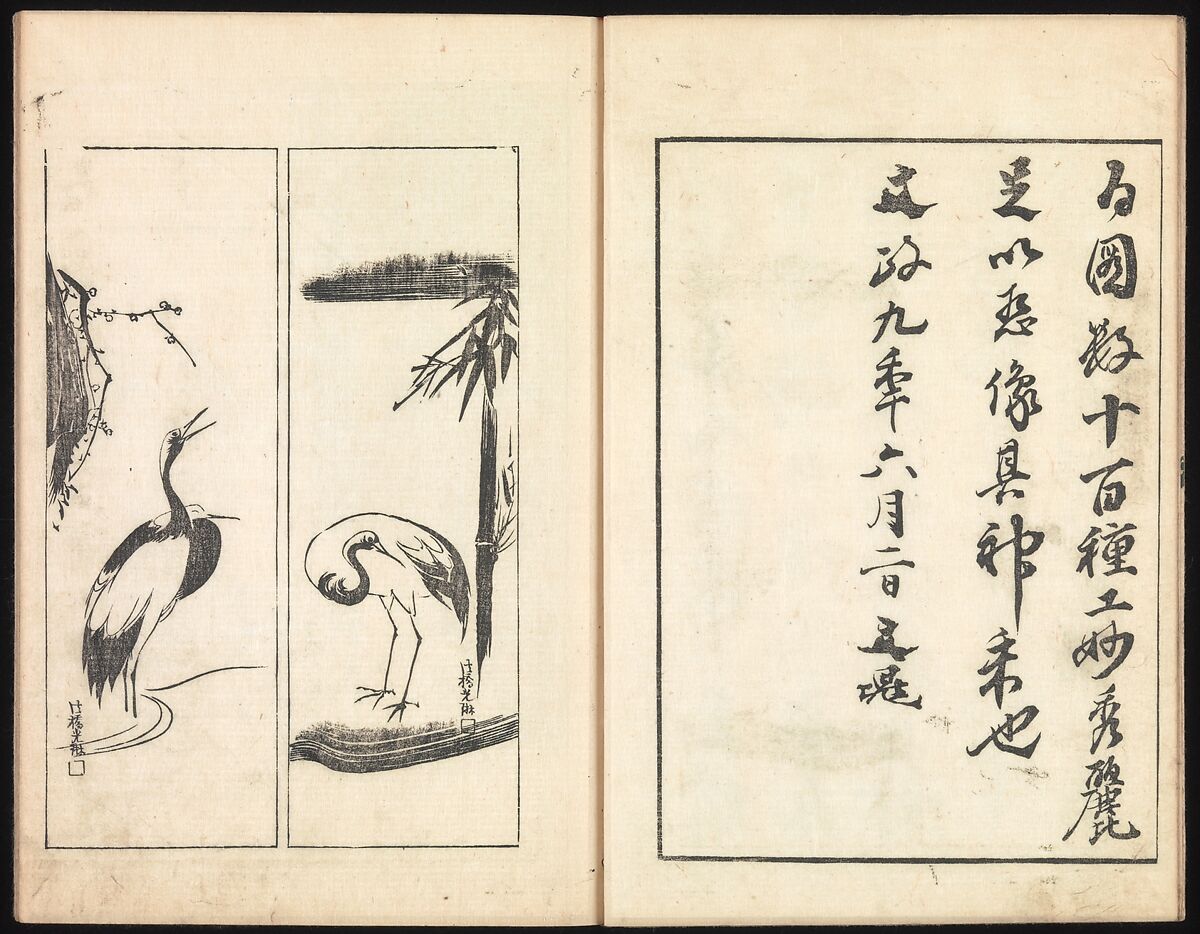 右圖数十百種工妙秀麗
足以悉像具神采也
文政九季六月二日文晁
法橋光琳
法橋光琳